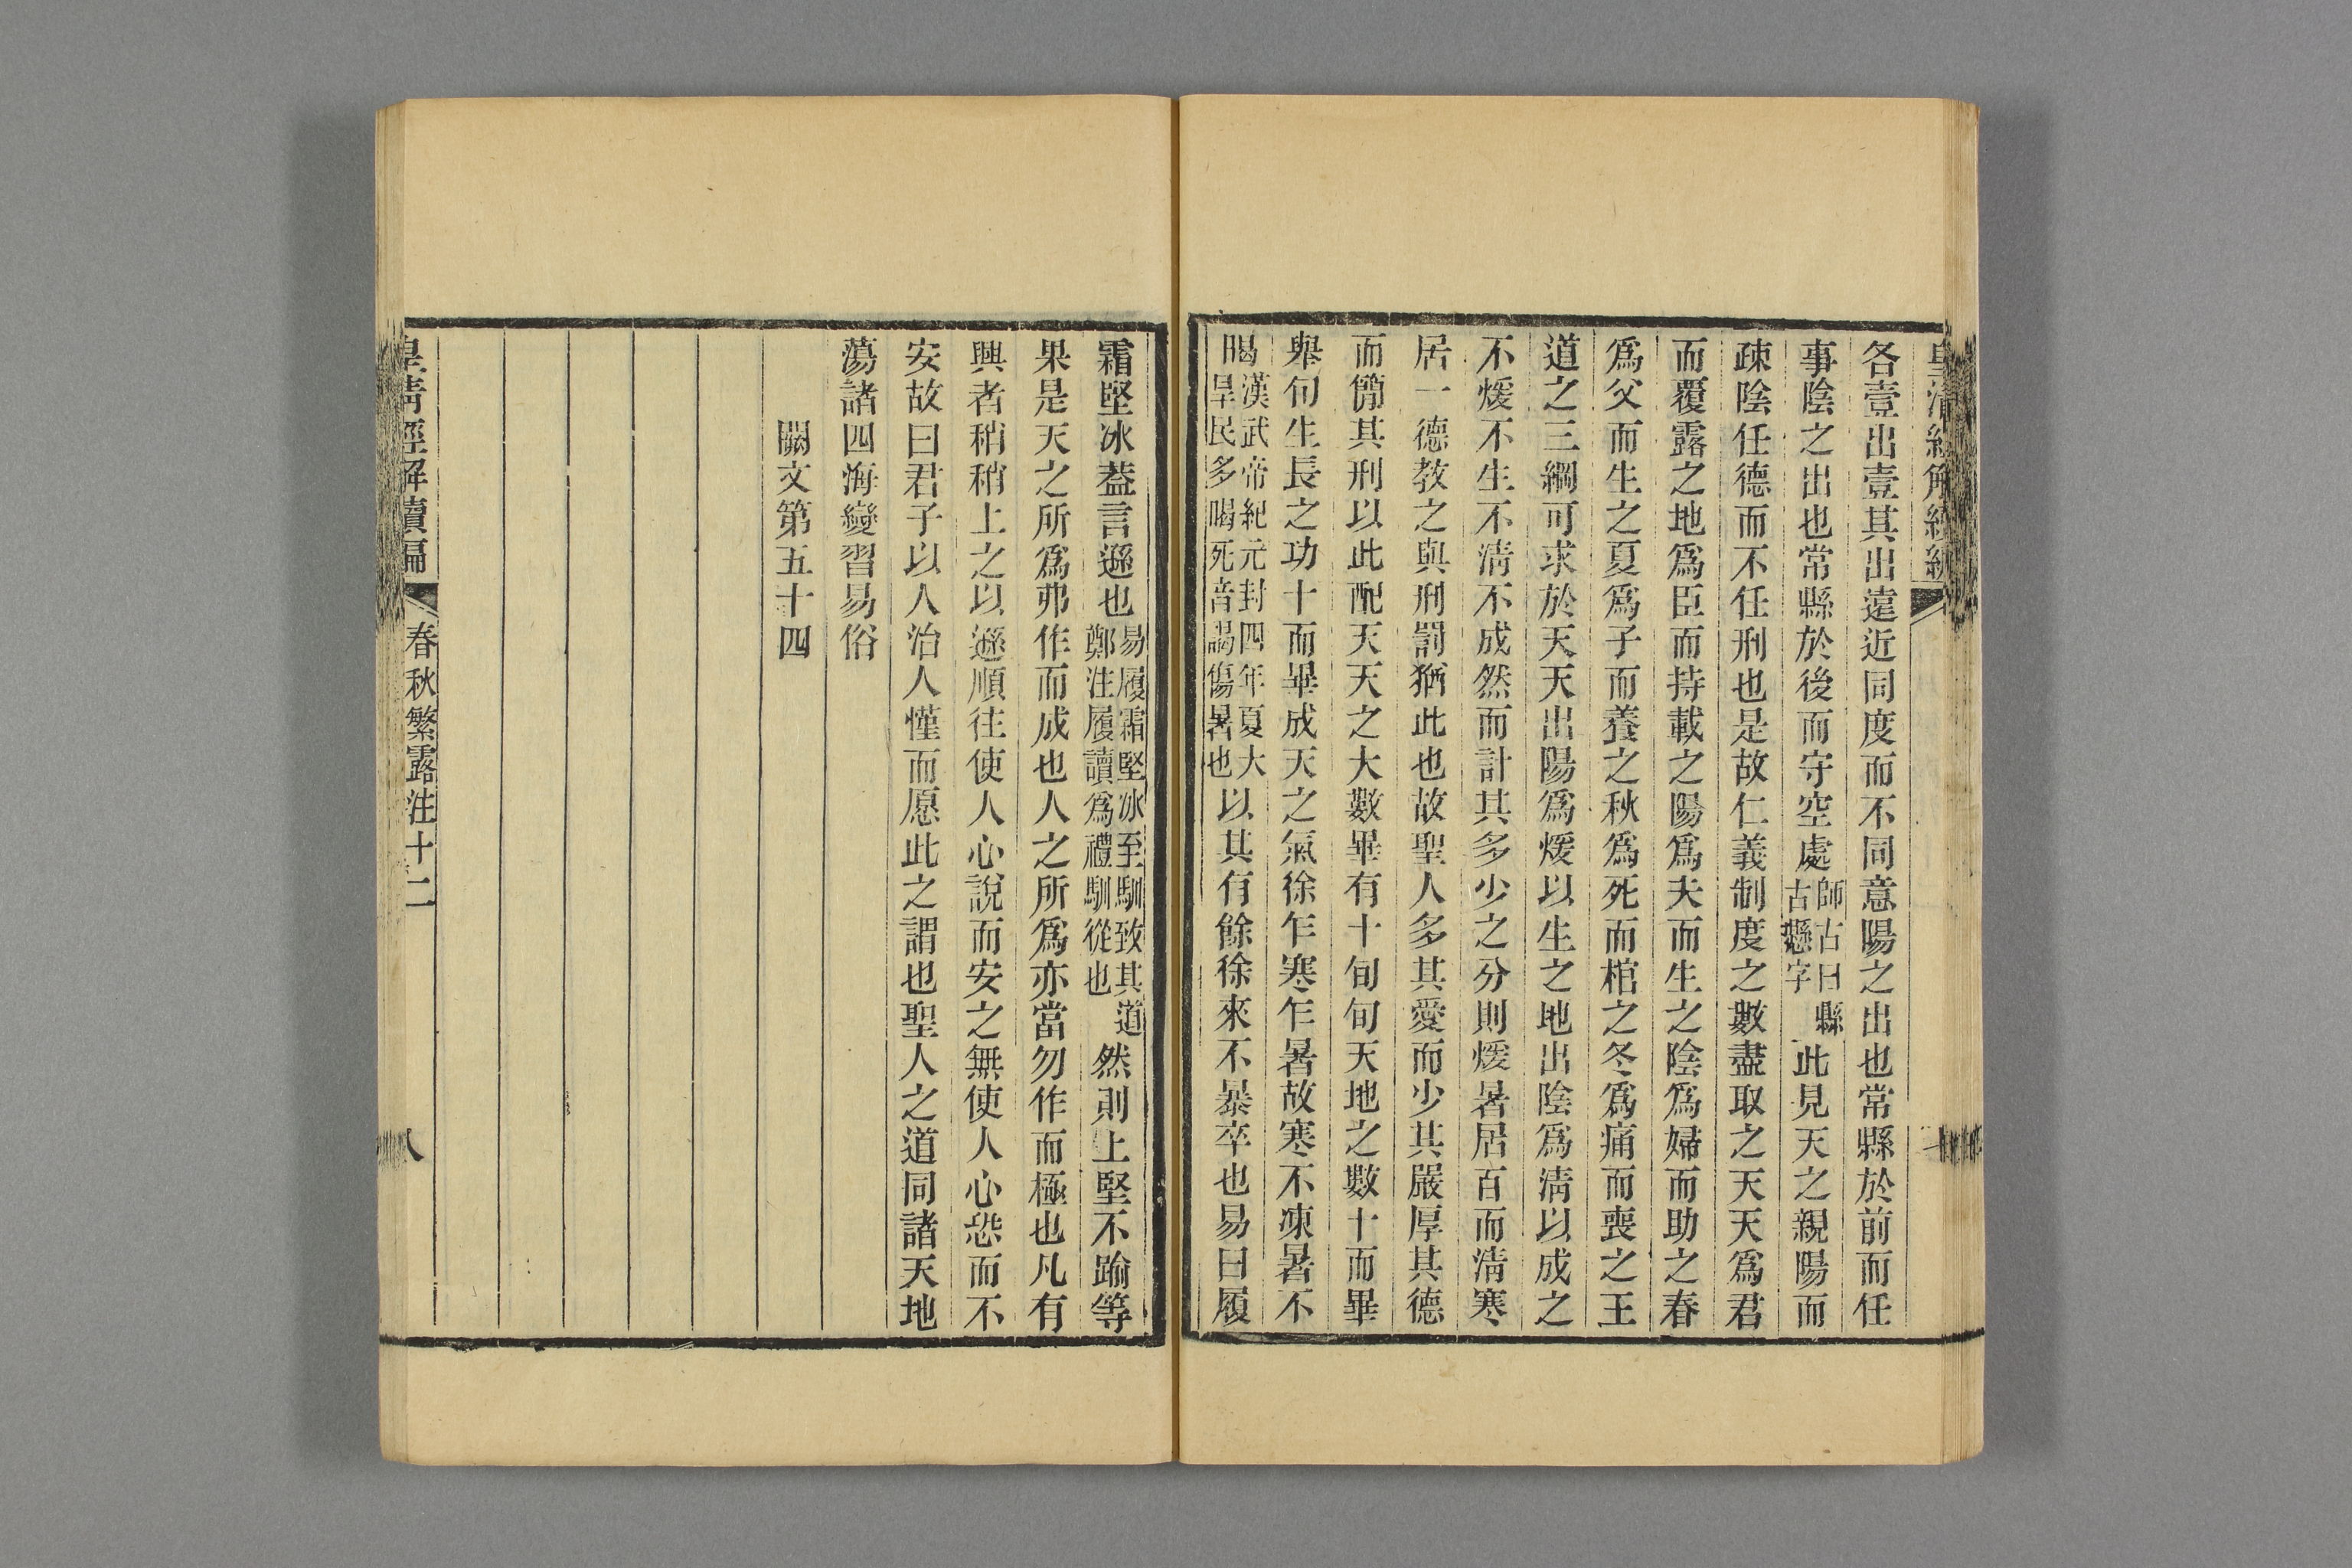 各壹出壹其出遠近同度而不同意陽之出也常縣於前而任
事陰之出也常縣於後而守空處師古曰縣古懸字此見天之親陽而
疎陰任德而不任刑也是故仁義制度之數盡取之天天爲君
而覆露之地爲臣而持載之陽爲夫而生之陰爲婦而助之春
爲父而生之夏爲子而養之秋爲死而棺之冬爲痛而喪之王
道之三綱可求於天天出陽爲煖以生之地出陰爲淸以成之
不煖不生不淸不成然而計其多少之分則煖暑居百而淸寒
居一德敎之與刑罰猶此也故聖人多其愛而少其嚴厚其德
而簡其刑以此配天天之大數畢有十旬旬天地之數十而畢
舉旬生長之功十而畢成天之氣徐乍寒乍暑故寒不凍暑不
暍漢武帝紀元封四年夏大旱民多暍死音謁傷暑也以其有餘徐來不暴卒也易曰履
霜堅冰葢言遜也易履霜堅冰至馴致其道鄭注履讀爲禮馴從也然則上堅不踰等
果是天之所爲弗作而成也人之所爲亦當勿作而極也凡有
興者稍稍上之以遜順往使人心說而安之無使人心恐而不
安故曰君子以人治人慬而愿此之謂也聖人之道同諸天地
蕩諸四海變習易俗
闕文第五十四
皇淸經解續編 春秋繁露注十二 八